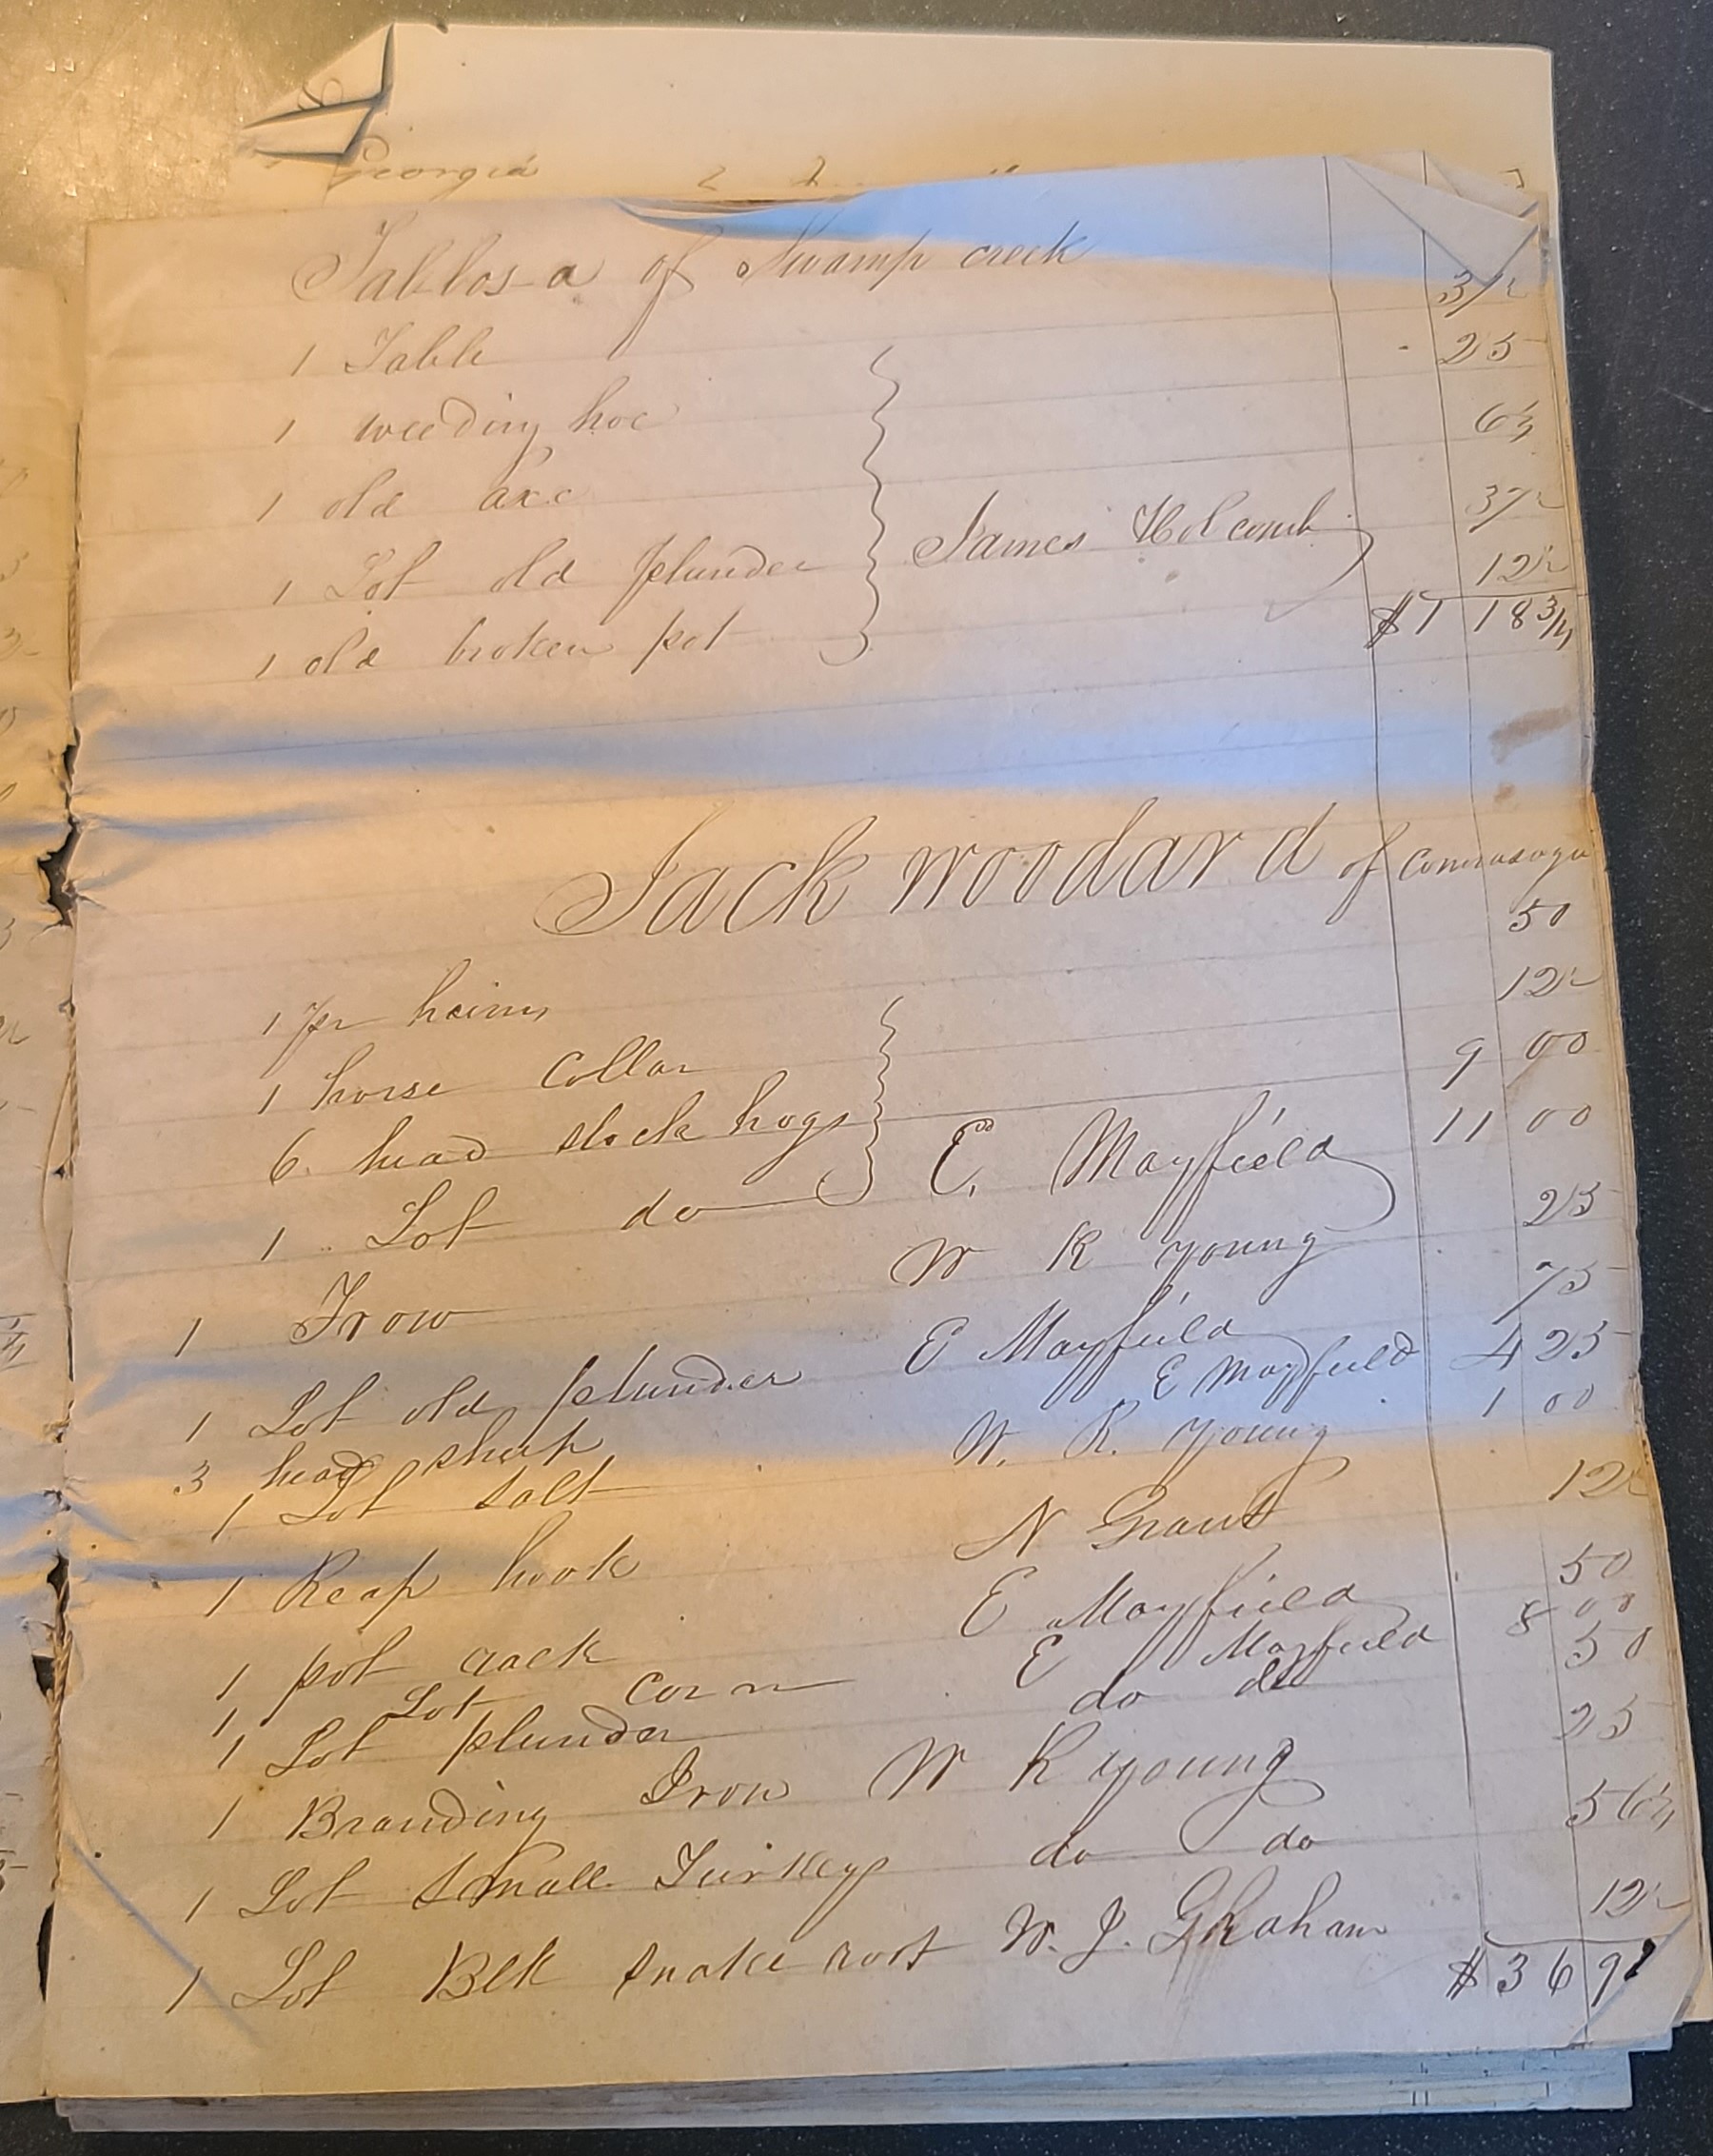 Georgia
Tallosa of Swamp creek
1 Table 37½
1 weeding hoe 25
1 old axe 6¼
1 Lot old plunder James Holcomb 37½
1 old broken pot 12½
$1 18¾
Jack Woodard of Connasaga
1 pr haims 50
1 horse Collar 12½
6. head stock hogs 9 00
1 Lot do E. Mayfield 11 00
1 Frow W R Young 25
1 Lot old plunder E Mayfield 75
3 head sheep E Mayfield 4 25
1 Lot salt W. R. Young 1 00
1 Reap hook N Grant 12½
1 pot rack E Mayfield 50
1 Lot corn E Mayfield 8 00
1 Lot plunder do do 50
1 Branding Iron W R Young 25
1 Lot Small Turkeys do do 56¼
1 Lot Blk snake root W. J. Ghraham 12½
$36 9